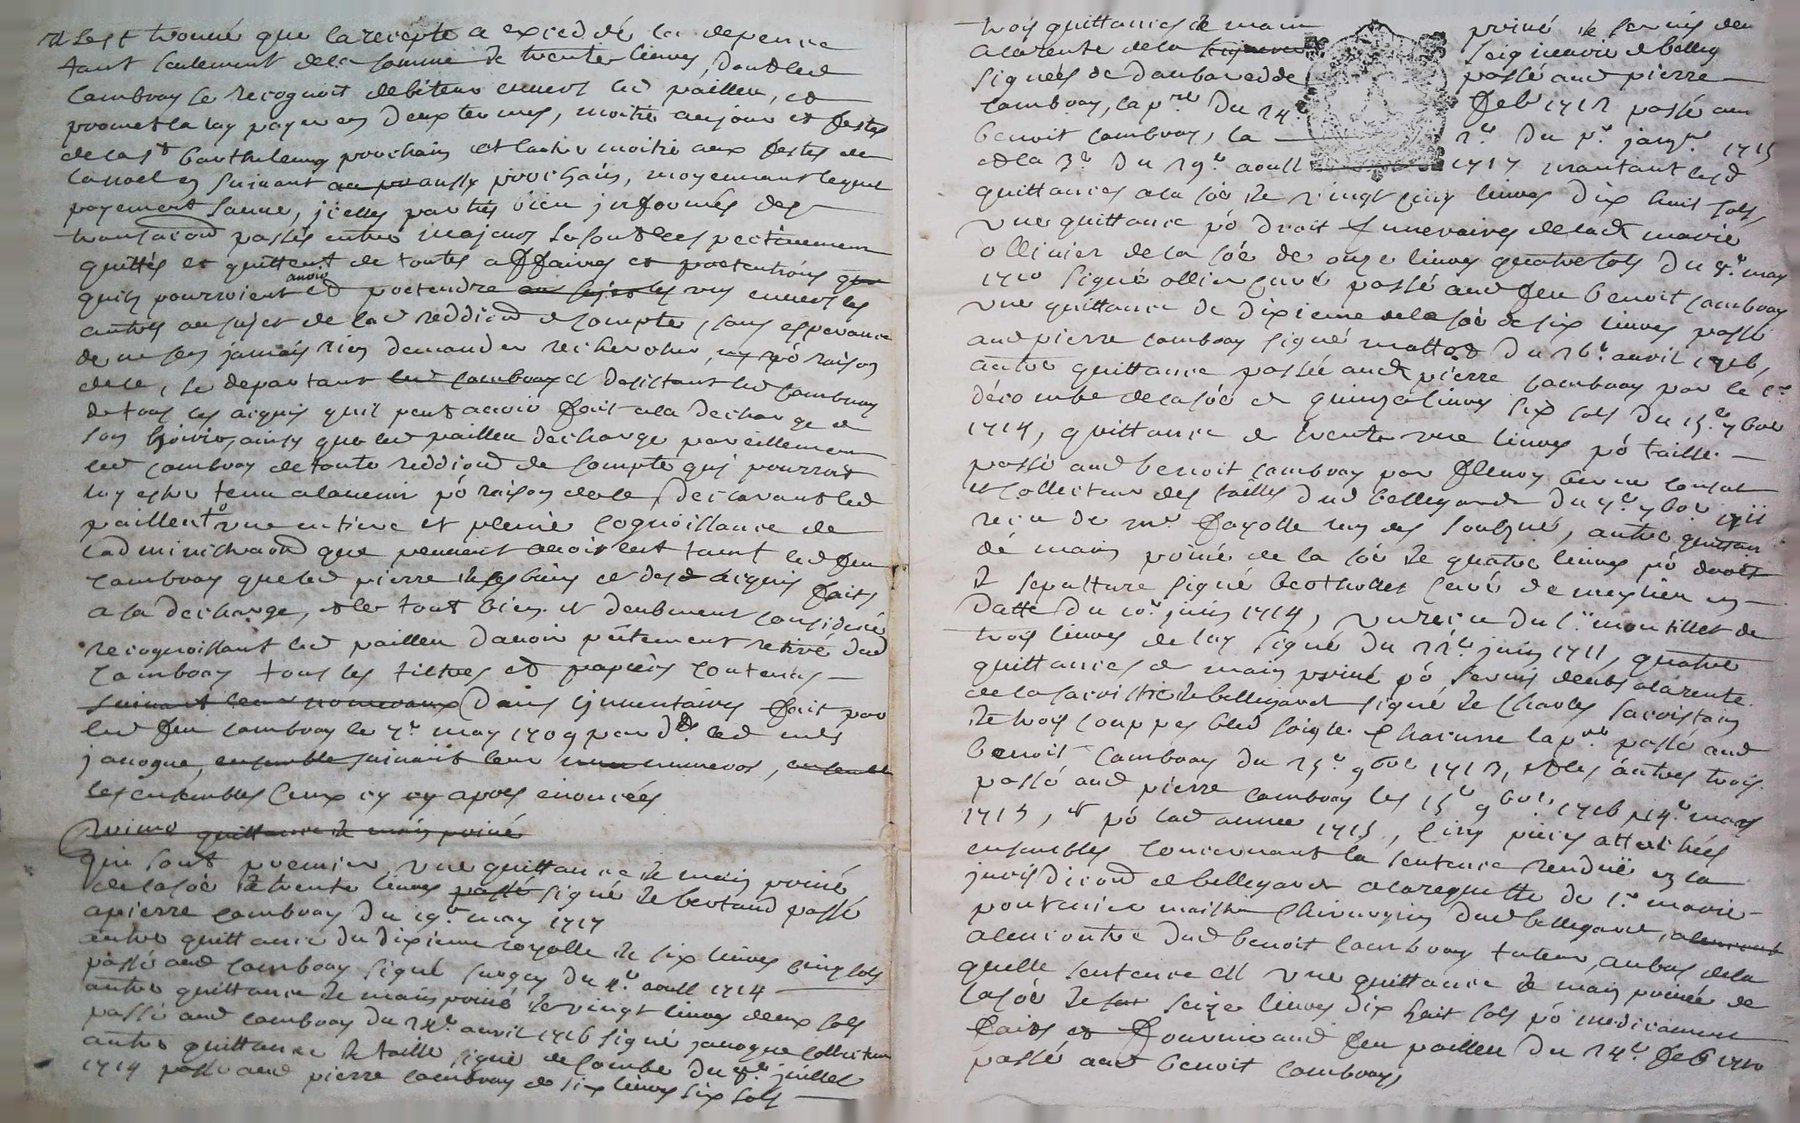 Il sest trouvé que la recepte a excedé la depence
tant seulement de la somme de trente livres, dont led
Cambray se recognoit debiteur envers led pailleu, et
promet la luy payer en deux termes, moitié au jour et festes
de la st barthelemy prochain et lautre moitié aux festes de
la noel en suivant au pr aussy prochain, moyennant lequel
payement sauve, jcelles parties bien jnformés de
transaction passés entre majeurs se sont respectivement
quittés et quittent de toutes affaires et pretentions que
quils pourroient avoir et pretendre au sujet les uns envers les
autres au sujet de lad reddition de compte, sans esperance
de ne sen jamais rien demander rechercher, ny po raison
de ce, se departant led Cambray et desistant led Cambray
de tous les acquis quil peut avoir fait a la decharge de
son hoirie, ainsy que led pailleu decharge pareillement
led Cambray de toute reddition de compte qui pourroit
luy estre tenu a lavenir po raison de ce, declarant led
paillieu avoir une entiere et pleine cognoissance de
ladministration que peuvent avoir eut tant led feu
Cambray que led pierre de ses biens et desd acquis faits
a la decharge, et le tout bien et deubment consideré
recognoissant led paillieu davoir presentement retiré dud
Cambray tous les tiltres et papiers contenus
suivant leur nouveaux Dans linventaire fait par
led feu Cambray le 7e may 1709 par dt led me
janogue, ensemble suivant leur numeros, ensemble
les ensembles Ceux cy cy apres enoncées
Primo quittance de main privé
Qui sont premier une quittance de main privé
de la soe de trente livres passé signé de bertaud passé
a pierre Cambray du 19e may 1717
autre quittance du dixieme royalle de six livres cinq sols
passé aud Cambray signé surgey du 4e aoust 1714
autre quittance de main privé de vingt livres deux sols
passé aud Cambray du 28e avril 1716 signé janogue collecteur
autre quittance de taille signé de Combe du 8e juillet
1714 passé aud pierre Cambray de six livres six sols
trois quittances de main privé de servis deu
a la rente de la seigneurie seigneurie de belleg
signées de Daubaredde passé aud pierre
Cambray, la pre du 24 feb 1712 passé au
benoit Cambray, la 2e du pr janvr 1715
et la 3e du 29e aoust 1717 montant lesd
quittances a la soe de vingt cinq livres dix huit sols
une quittance po droit funeraires de lad marie
ollinier de la soe de onze livres quatre sols du 8e may
1710 signé ollier Curé passé aud feu benoit Cambray
une quittance de dixieme de la soe de six livres passé
aud pierre Cambray signé du 26e avril 1716,
autre quittance passée aud pierre Cambray par le sr
décombe de la soe de quinze livres six sols du 15e 9bre
1714, quittance de trente une livres po taille
passé aud benoit Cambray par fleury consul
et collecteur des tailles dud bellegarde du 4e 9bre 1711
reçu de me fayolle soubzné, autre quittan
de main privé de la soe de quatre livres po droit
de sepulture signé bertholet Curé de meylieu en
datte du 10e juin 1714, un reçu du sr montillet de
trois livres de luy signé du 22e juin 1711, quatre
quittances de main privé po servis deubs a la rente
de la sacristie de bellegarde signé de Charles sacristain
de trois couppes bled soigle chacunne la pre passé aud
benoit Cambray du 25e 9bre 1713, et les autres trois
passé aud pierre Cambray les 15e 9bre 1716 14e mars
1715, et po lad année 1715, Cinq pieces attachées
ensembles concernant la sentence rendue en la
jurisdiction de bellegarde a la requette de sr marie
pontonier maistre Chirurgien dud bellegarde, a lencontre
a lencontre dud benoit Cambray tuteur, au bas de la
quelle sentence est une quittance de main privée de
la soe de set seize livres dix huit sols po medicament
faits et fournis aud feu paillieu du 24e feb 1710
passé aud benoit Cambray,